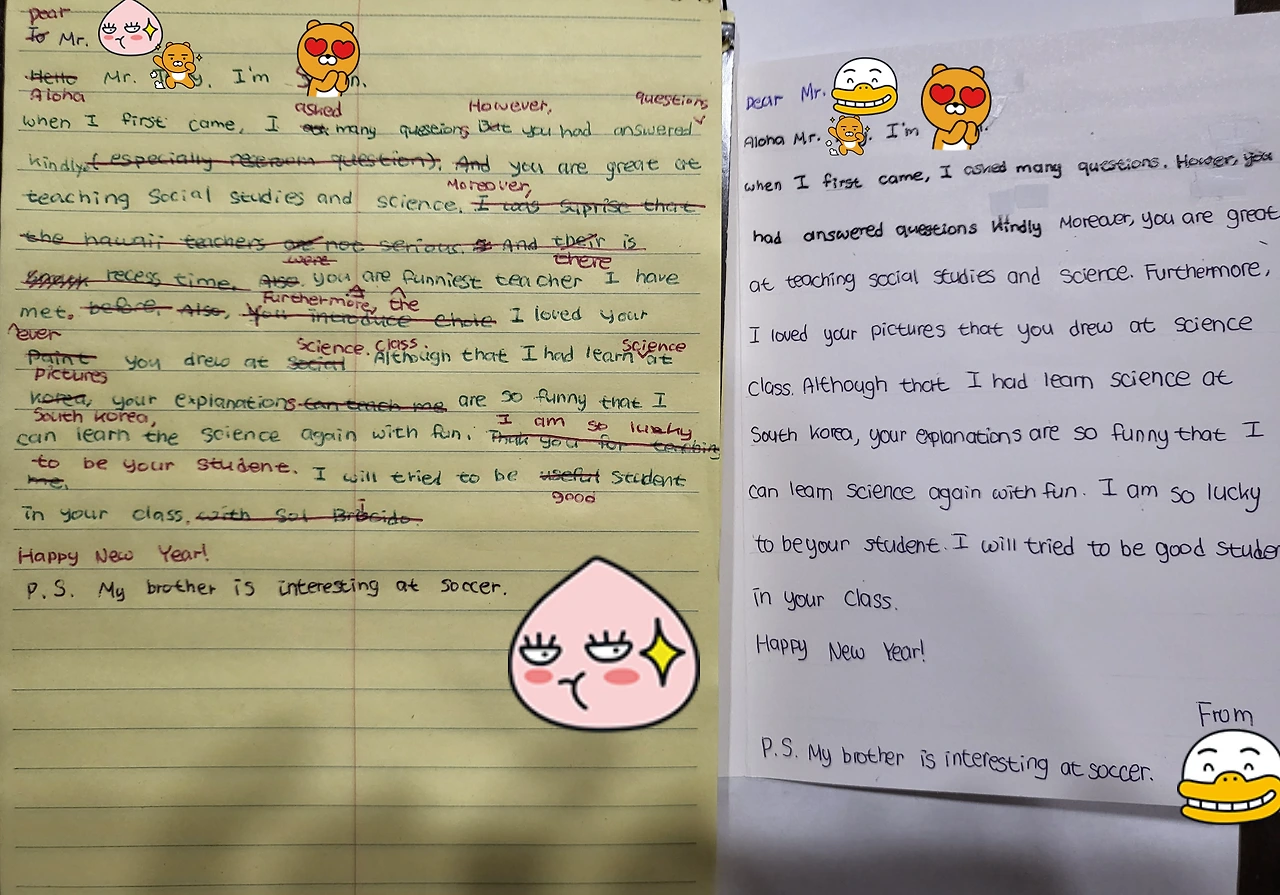 Dear
To Mr.
Hello Mr. y. I'm n.
Aloha
asked However, questions
when I first came, I ask many questions But you had answered
kindly.( especially restroom question). And you are great at
Moreover,
teaching Social studies and science. I was suprise that
the hawaii teachers are not serious. And their is
were there
recess time. Also you are funniest teacher I have
Furthermore, the
met. before. Also, You introduce Choie I loved your
ever
Science class.
Paint you drew at social Although that I had learn at
Science
pictures
korea, your explanations can teach me are so funny that I
South korea,
I am so lucky
can learn the science again with fun. Thank you for teaching
to be your student. I will tried to be useful student
me.
good
in your class. with Sol
Happy New Year!
P.S. My brother is interesting at soccer.
Dear Mr.
Aloha Mr. I'm
when I first came, I asked many questions. Howver, you
had answered questions kindly Moreover, you are great
at teaching social studies and science. Furthermore,
I loved your pictures that you drew at science
class. Although that I had learn science at
South korea, your explanations are so funny that I
can learn science again with fun. I am so lucky
to be your student. I will tried to be good studen
in your class.
Happy New Year!
From
P.S. My brother is interesting at soccer.